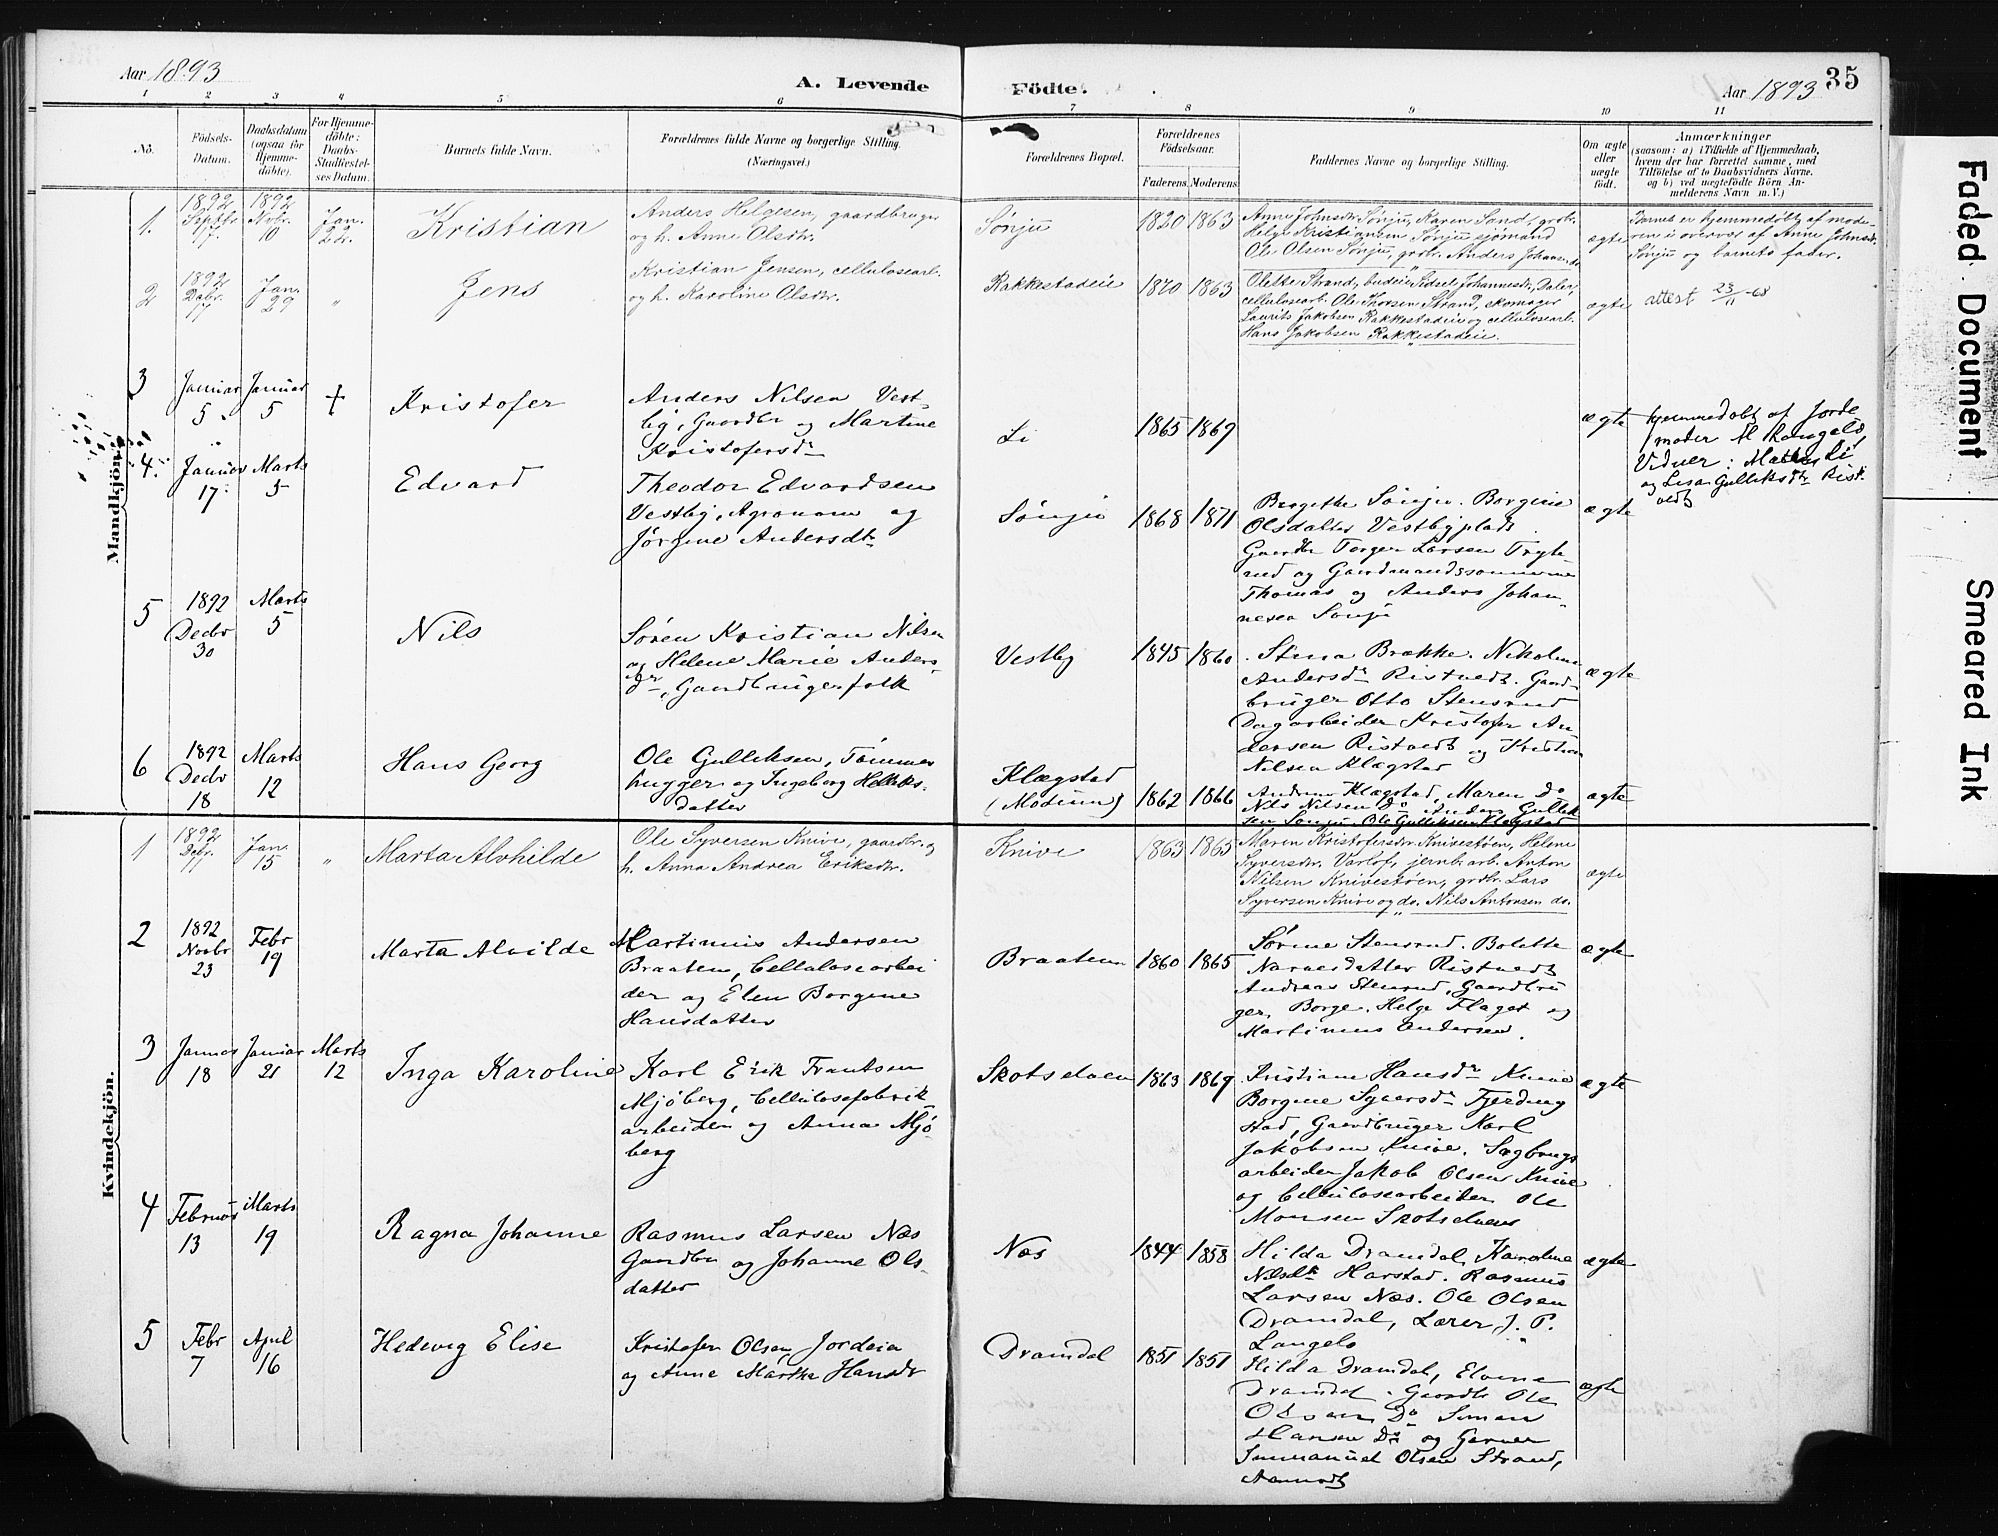 Aar 1893
A. Levende
Födte.
Aar 1893
35
1 2 3 4 5 6 7 8 9 10 11
No.
Födsels-
Datum.
Daabsdatum
(ogsaa for
Hjemme-
döbte).
For Hjemme-
döbte:
Daabs-
Stadfæstel-
ses Datum.
Barnets fulde Navn.
Forældrenes fulde Navne og borgerlige Stilling.
(Næringsvei.)
Forældrenes Bopæl.
Forældrenes
Födselsaar.
Faderens. Moderens.
Faddernes Navne og borgerlige Stilling.
Om ægte
eller
uægte
födt.
Anmærkninger
(saasom: a) i Tilfælde af Hjemmedaab,
hvem der har forrettet samme, med
Tilföielse af to Daabsvidners Navne.
og b) ved uægtefödte Börn An-
melderens Navn m. V.)
Mandkjön.
1. 1892 Septbr. 17. 1892 Novbr. 10 Jan. 22.
Kristian
Anders Helgesen, gaardbruger
og h. Anne Olsdtr.
Sønju
1820 1863
Anne Johnsdr. Sønju, Karen Sand, grdbr.
Helge Kristiansen Sønju sjömand
Ole Olsen Sønju, grdbr. Anders Johansen do
ægte
Barnet er hjemmedøbt af mode-
ren i overvær af Anne Johnsdr.
Sønju og barnets fader.
2 1892 Debr. 17 Jan. 29 "
Jens
Kristian Jensen, cellulosearb.
og h. Karoline Olsdtr.
Rakkestadeie
1870 1863
Oleske Strand, budeie Sidsel Johannesdr. Dalen,
cellulosearb. Ole Thorsen Strand, skomager
Laurits Jakobsen Rakkestadeie og cellulosearb.
Hans Jakobsen Rakkestadeie.
ægte
attest 23/11-68
3 Januar 5 Januar 5 +
Kristofer
Anders Nilsen Vest-
by, Gaardbr og Martine
Kristofersdr
Li
1865 1869
ægte
hjemmedøbt af Jorde
moder M Langeló,
Vidner: Mathea Li
og Lisa Gulliksdtr Rist-
vedt
4. Januar 17. Marts 5
Edvard
Theodor Edvardsen
Vestby, Agronom og
Jörgine Andersdtr
Sønju
1868 1871
Bergithe Sønju. Borgine
Olsdatter Vestbyplads
Gaardbr Torger Larsen Tryte
rud og Gaardmandssønnerne
Thomas og Anders Johan-
nesen Sønju
ægte
5 1892 Decbr 30 Marts 5
Nils
Sören Kristian Nilsen
og Helene Marie Anders
dr, Gaardbrugerfolk
Vestby
1845 1860
Stina Brække. Nikoline
Andersdr Ristvedt. Gaard-
bruger Otto Stensrud
Dagarbeider Kristofer An
dersen Ristvedt og Kristian
Nilsen Klægstad
ægte
6 1892 Decbr 18 Marts 12
Hans Georg
Ole Gulliksen, Tømmer
hugger og Ingeborg Helleks-
datter
Klægstad
(Modum)
1862 1866
Andrine Klægstad, Maren Do
Nils Nilsen Do Anders Gullik
sen Sønju Ole Gulliksen Klægstad
ægte
Kvindekjön.
1 1892 Debr. 17 Jan. 15 "
Marta Alvhilde
Ole Syversen Knive, gaardbr. og
h. Anna Andrea Eriksdr.
Knive
1863 1865
Maren Kristofersdr. Knivestøen, Helene
Syversdr. Varlof, jernb.arb. Anton
Nilsen Knivestøen, grdbr. Lars
Syversen Knive og do. Nils Antonsen do.
ægte
2 1892 Novbr 23 Febr 19
Marta Alvilde
Martinius Andersen
Braaten, Cellulosearbei
der og Elen Borgine
Hansdatter
Braaten
1860 1865
Sørine Stensrud. Bolette
Narvesdatter Ristvedt
Andreas Stensrud, Gaardbru
ger, Borge. Helge Flaget og
Martinius Andersen.
ægte
3 Januar 18 Januar 21 Marts 12
Inga Karoline
Karl Erik Frantsen
Mjöberg, Cellulosefabrik-
arbeider og Anna Mjö-
berg
Skotselven
1863 1869
Kristiane Hansdr Knive
Borgine Syversdr Fjerding
stad, Gaardbruger Karl
Jakobsen Knive. Sagbrugs
arbeider Jakob Olsen Knive
og Cellulosearbeider Ole
Monsen Skotselven
ægte
4 Februar 13 Marts 19
Ragna Johanne
Rasmus Larsen Næs
Gaardbr og Johanne Ols-
datter
Næs
1844 1858
Hilda Dramdal, Karoline
Nilsdtr Harstad. Rasmus
Larsen Næs. Ole Olsen
Dramdal, Lærer J. P.
Langeló
ægte
5 Febr 7 April 16
Hedevig Elise
Kristofer Olsen, Jordeier
og Anne Marthe Hansdr
Dramdal
1851 1851
Hilda Dramdal, Elvine
Dramdal. Gaardbr Ole
Olsen Do Simen
Hansen Do og Garver
Immanuel Olsen Strand,
Aamodt
ægte
Faded Document
Smeared Ink